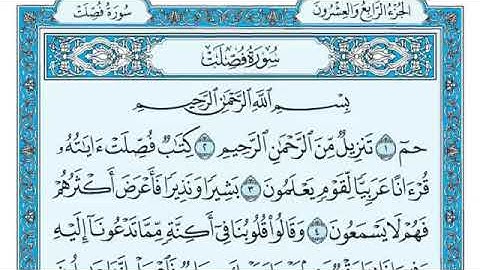 الجزء الرابع والعشرون
سورة فصلت
سُورَةُ فُصِّلَتْ
بِسْمِ اللَّهِ الرَّحْمَٰنِ الرَّحِيمِ
حمٓ ١ تَنزِيلٌ مِّنَ ٱلرَّحْمَٰنِ ٱلرَّحِيمِ ٢ كِتَٰبٌ فُصِّلَتْ ءَايَٰتُهُۥ
قُرْءَانًا عَرَبِيًّا لِّقَوْمٍ يَعْلَمُونَ ٣ بَشِيرًا وَنَذِيرًا فَأَعْرَضَ أَكْثَرُهُمْ
فَهُمْ لَا يَسْمَعُونَ ٤ وَقَالُوا۟ قُلُوبُنَا فِىٓ أَكِنَّةٍ مِّمَّا تَدْعُونَآ إِلَيْهِ